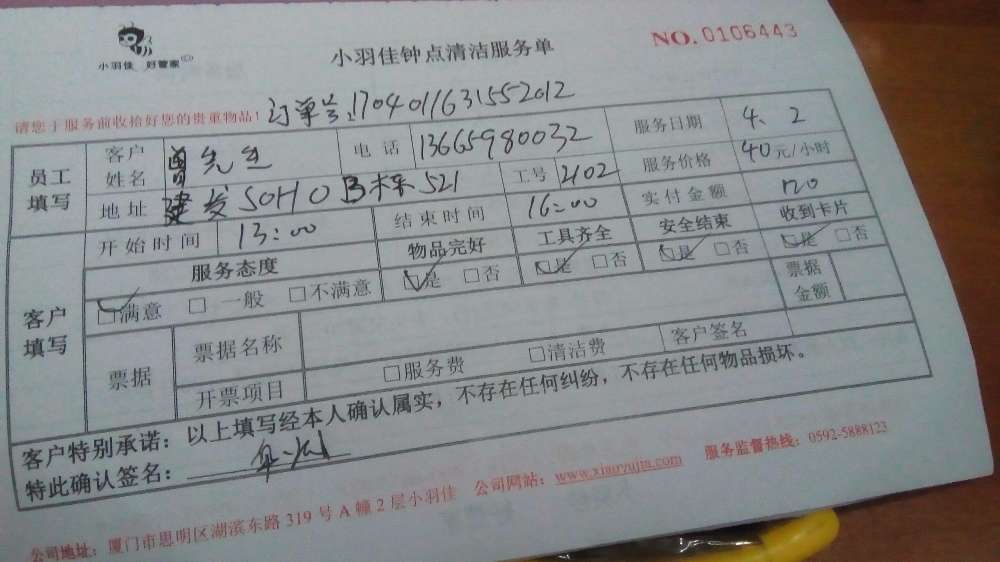 小羽佳 好管家
小羽佳钟点清洁服务单
NO.0106443
请您于服务前收拾好您的贵重物品!
订单号:1704011631552012
员工填写
客户姓名 曾先生 电话 13665980032 服务日期 4.2
地址 建发SOHO B栋521 工号 2102 服务价格 40元/小时
开始时间 13:00 结束时间 16:00 实付金额 120
客户填写
服务态度 物品完好 工具齐全 安全结束 收到卡片
☑满意 □一般 □不满意 ☑是 □否 ☑是 □否 ☑是 □否 ☑是 □否
票据 票据名称 票据金额
开票项目 □服务费 □清洁费 客户签名
客户特别承诺:以上填写经本人确认属实,不存在任何纠纷,不存在任何物品损坏。
特此确认签名:
公司地址:厦门市思明区湖滨东路319号A幢2层小羽佳 公司网站:www.xiaoyujia.com 服务监督热线:0592-5888123